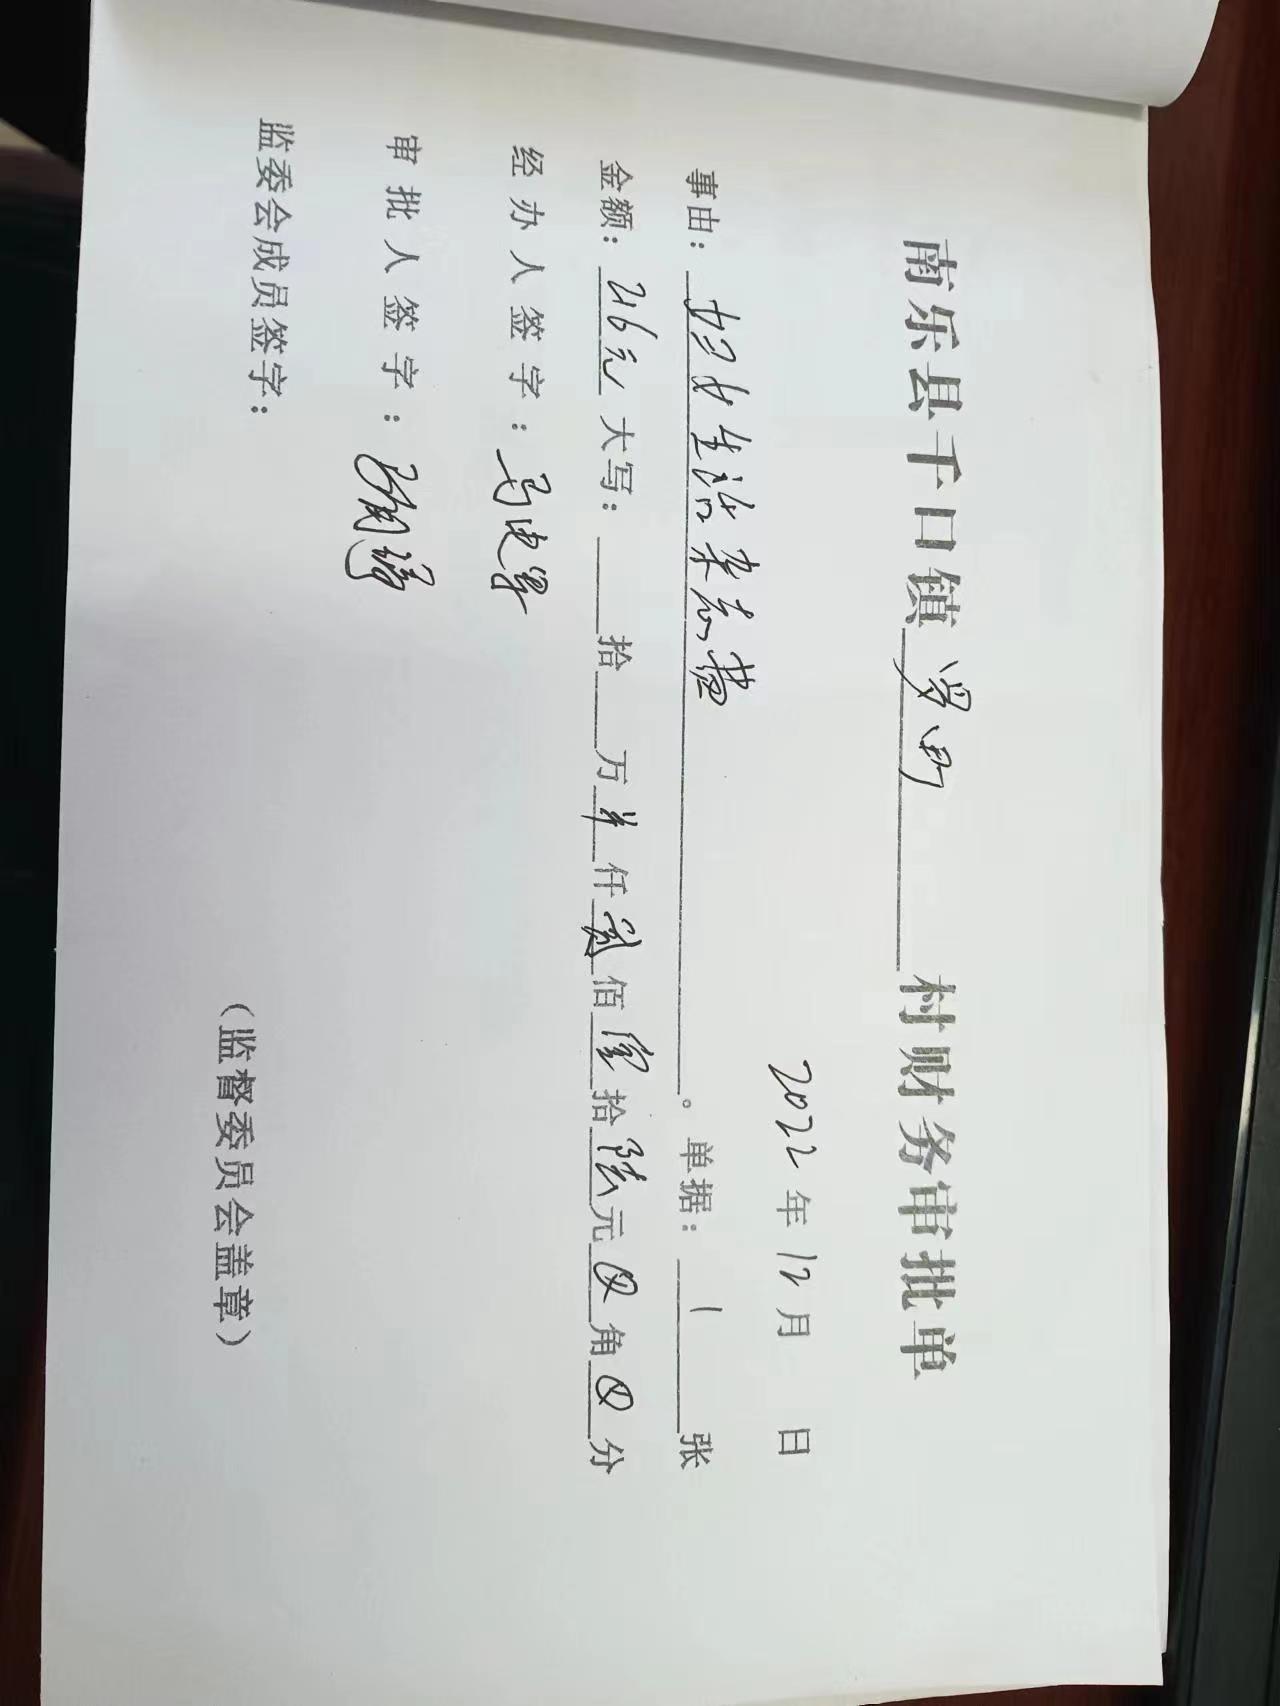 南乐县千口镇 罗町 村财务审批单
2022年12月 日
事由：妇女生活杂志费。单据：1张
金额：216元 大写： 拾 万 仟贰佰壹拾陆元⊗角⊗分
经办人签字：马
审批人签字：
监委会成员签字：
（监督委员会盖章）